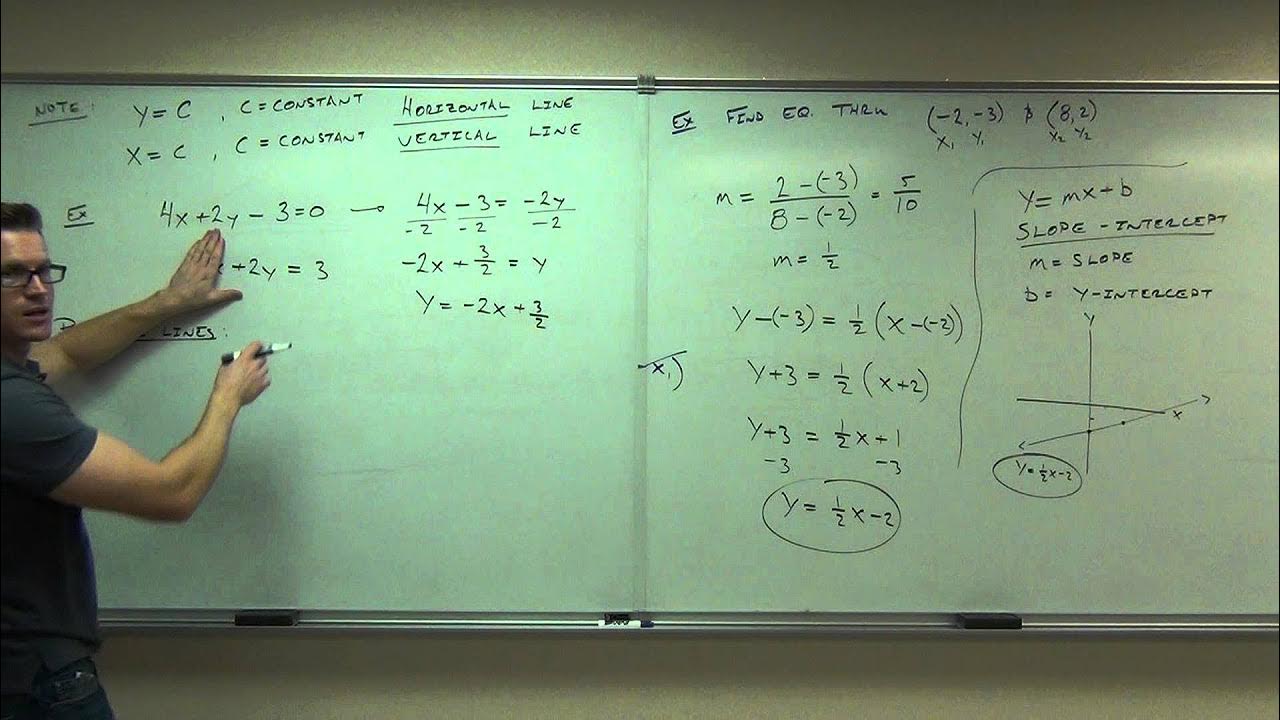 NOTE: Y = C , C = CONSTANT HORIZONTAL LINE
X = C , C = CONSTANT VERTICAL LINE
Ex 4x + 2y - 3 = 0 → 4x - 3 = -2y
-2 -2 -2
+ 2y = 3
-2x + 3/2 = y
Y = -2x + 3/2
LINES:
-x₁)
Ex FIND EQ. THRU (-2, -3) & (8, 2)
X₁ Y₁ X₂ Y₂
m = 2 - (-3) / 8 - (-2) = 5/10
m = 1/2
Y - (-3) = 1/2 (x - (-2))
Y + 3 = 1/2 (x + 2)
Y + 3 = 1/2 x + 1
-3 -3
Y = 1/2 x - 2
Y = mx + b
SLOPE - INTERCEPT
m = SLOPE
b = Y-INTERCEPT
Y
X
Y = 1/2 x - 2